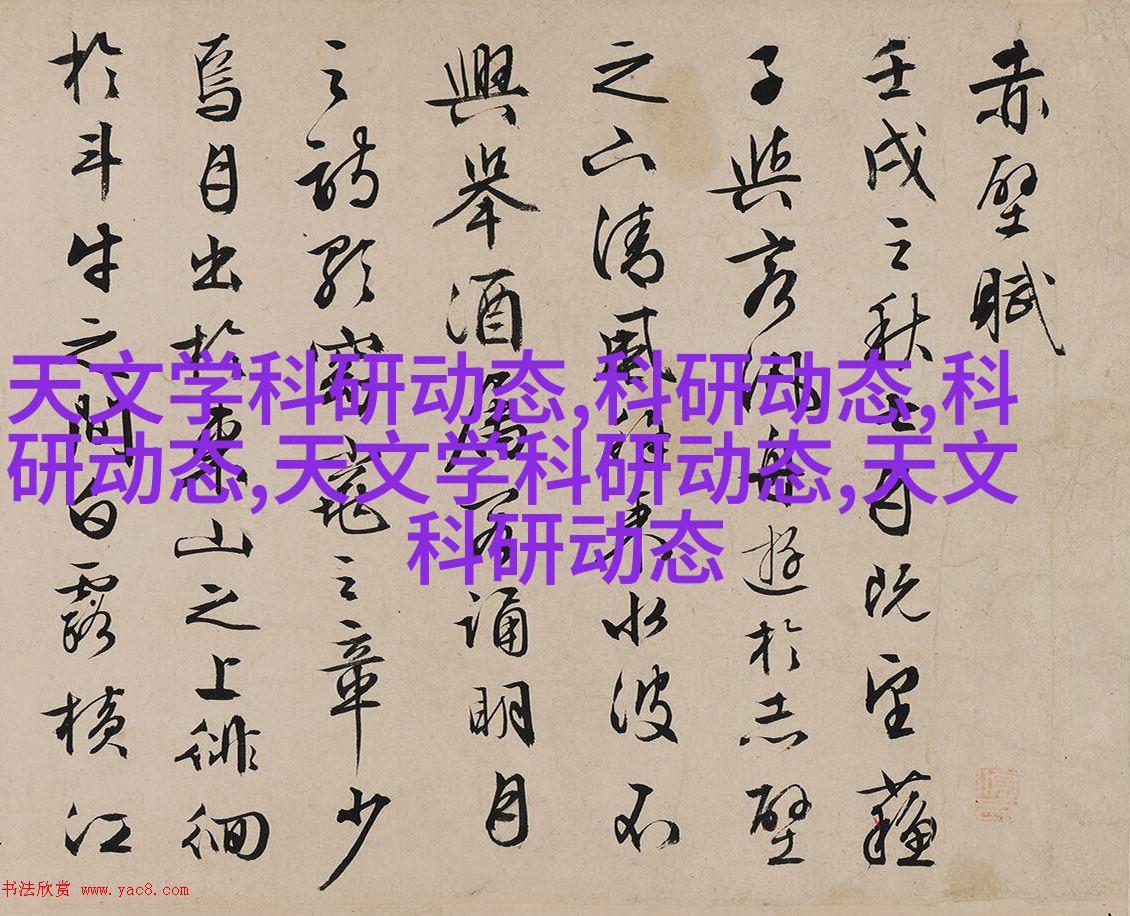 赤壁賦
壬戌之秋七月既望蘇
子與客泛舟遊於赤壁
之下清風徐來水波不
興舉酒屬客誦明月
之詩歌窈窕之章少
焉月出於東山之上徘徊
於斗牛之間白露橫江
天文学科研动态,科研动态,科
研动态,天文学科研动态,天文
科研动态
书法欣赏 www.yac8.com